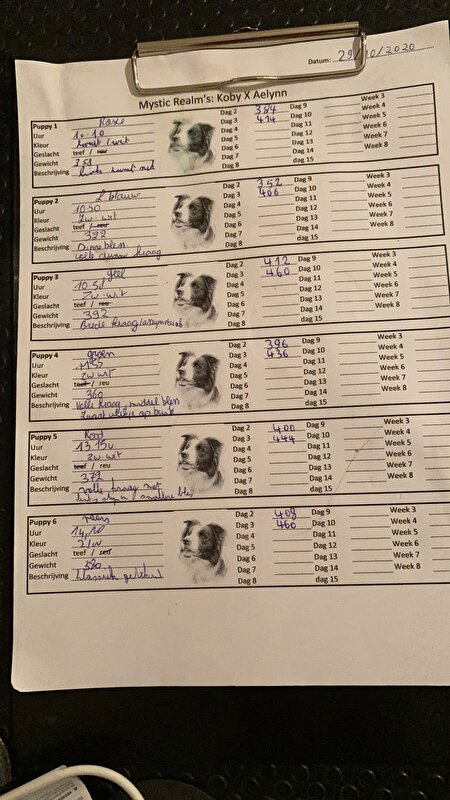 Datum: 29/10/2020
Mystic Realm's: Koby X Aelynn
Puppy 1 Dag 2 384 Dag 9 Week 3
Uur 10.10 Dag 3 414 Dag 10 Week 4
Kleur zwart/wit Dag 4 Dag 11 Week 5
Geslacht teef / reu Dag 5 Dag 12 Week 6
Gewicht 351 Dag 6 Dag 13 Week 7
Beschrijving Dag 7 Dag 14 Week 8
Dag 8 dag 15
Puppy 2 L blauw Dag 2 352 Dag 9 Week 3
Uur 10 50 Dag 3 406 Dag 10 Week 4
Kleur Zw-wit Dag 4 Dag 11 Week 5
Geslacht teef / reu Dag 5 Dag 12 Week 6
Gewicht 322 Dag 6 Dag 13 Week 7
Beschrijving Dunne bles Dag 7 Dag 14 Week 8
volle dunne kraag Dag 8 dag 15
Puppy 3 geel Dag 2 412 Dag 9 Week 3
Uur 10.58 Dag 3 460 Dag 10 Week 4
Kleur Zw-wit Dag 4 Dag 11 Week 5
Geslacht teef / reu Dag 5 Dag 12 Week 6
Gewicht 392 Dag 6 Dag 13 Week 7
Beschrijving Brede kraag/assymetrisch Dag 7 Dag 14 Week 8
Dag 8 dag 15
Puppy 4 groen Dag 2 396 Dag 9 Week 3
Uur 11 55 Dag 3 436 Dag 10 Week 4
Kleur zw wit Dag 4 Dag 11 Week 5
Geslacht teef / reu Dag 5 Dag 12 Week 6
Gewicht 360 Dag 6 Dag 13 Week 7
Beschrijving Volle kraag, middel bles Dag 7 Dag 14 Week 8
zwart op Dag 8 dag 15
Puppy 5 Rood Dag 2 400 Dag 9 Week 3
Uur 13.15u Dag 3 444 Dag 10 Week 4
Kleur zw-wit Dag 4 Dag 11 Week 5
Geslacht teef / reu Dag 5 Dag 12 Week 6
Gewicht 372 Dag 6 Dag 13 Week 7
Beschrijving volle kraag met Dag 7 Dag 14 Week 8
smallere bles Dag 8 dag 15
Puppy 6 Dag 2 408 Dag 9 Week 3
Uur 14,10 Dag 3 460 Dag 10 Week 4
Kleur Z/W Dag 4 Dag 11 Week 5
Geslacht teef / reu Dag 5 Dag 12 Week 6
Gewicht 380 Dag 6 Dag 13 Week 7
Beschrijving klassiek getekend Dag 7 Dag 14 Week 8
Dag 8 dag 15